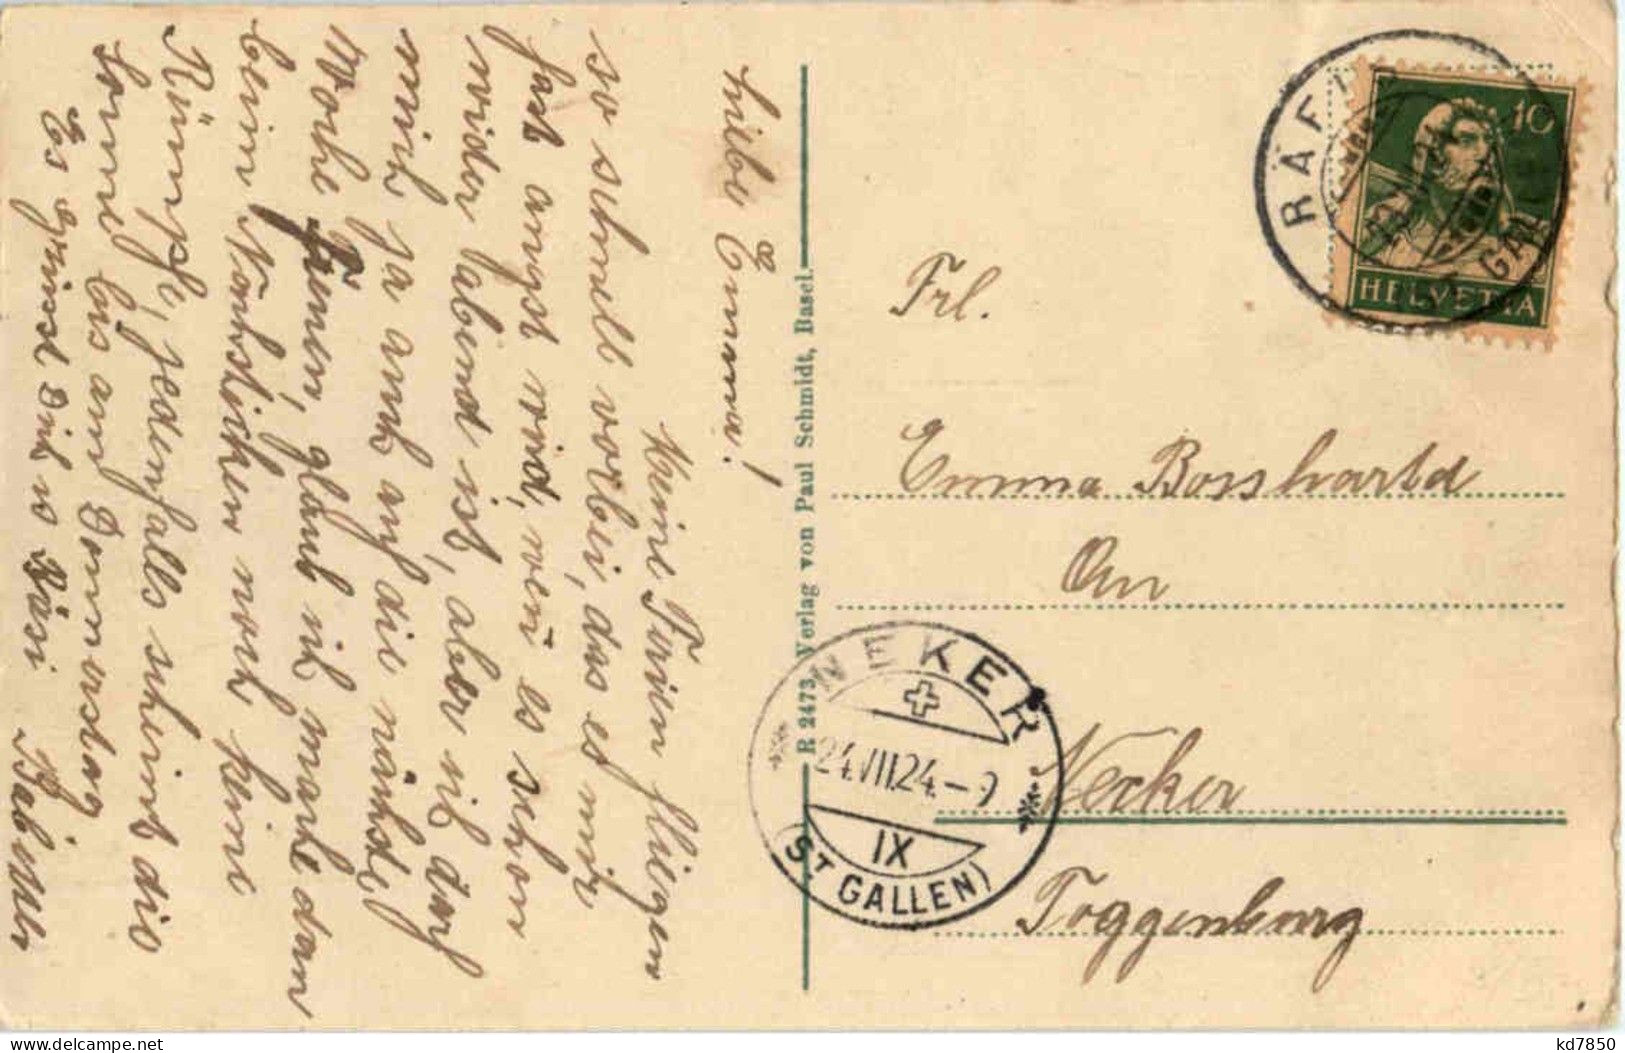 Liebe Emma!
Meine Ferien fliegen
so schnell vorbei, das es mir
fast angst wird, wen es schon
wider abend ist, aber ich darf
mich ja auch auf die nächste
Woche freuen, glaub ich mache dan
beim Nochsticken noch keine
Rümpfe, jedenfalls scheint die
Sonne bis am Donnerstag
Es grüsst dich
Rösi
R 2473, Verlag von Paul Schmidt, Basel.
RÄFI
GALL
10
HELVETIA
Frl.
Emma Bosshartd
Neker
Toggenburg
NEKER
24.VII.24.-9
IX
(ST GALLEN)
kd7850